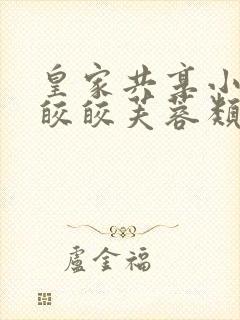 皇家共享小
皎皎芙蓉类
盧金福